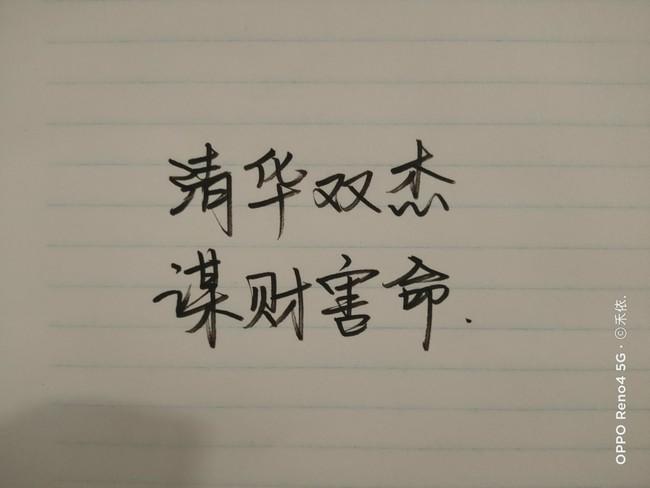 清华双杰
谋财害命.
OPPO Reno4 5G · ©禾依.